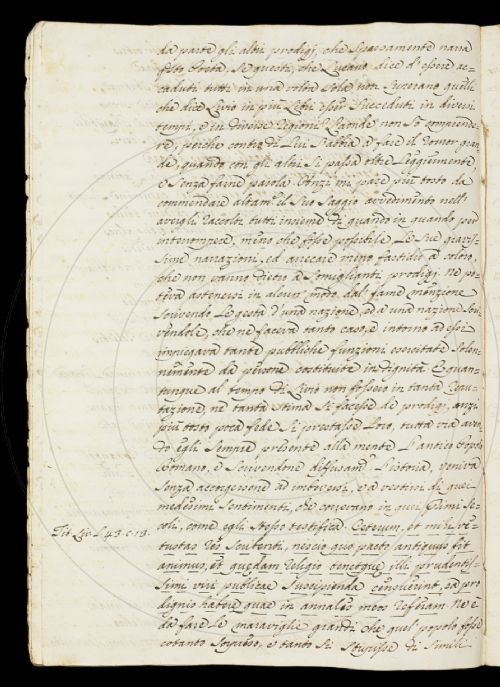 da parte gli altri prodigj, che spessamente narra
se questi, che Lucano dice d'essere ac=
caduti tutti in una volta sola non furono quelli
che dice Livio in più esser succeduti in diversi
tempi, e in diverse regioni? Laonde non so comprende=
re, perchè contro di Lui s'abbia a fare il romor gran=
de, quando con gli altri si passa oltre leggiermente
e senza farne parola. Anzi mi pare più tosto da
commendare altam.te il suo saggio avvedimento nell'
avergli raccolti tutti insieme di quando in quando per
interrompere, meno che fosse possibile, le sue gravis=
sime narrazioni, ed arrecare meno fastidio a coloro,
che non vanno dietro a somiglianti prodigj. Ne po=
teva astenersi in alcun modo dal farne menzione
scrivendo le gesta d'una nazione, ed a una nazione scri=
vendole, che ne faceva tanto caso, e intorno ad essi
impiegava tante pubbliche funzioni esercitate solen=
nemente da persone costituite in dignità. E quan=
tunque al tempo di Livio non fossero in tanta repu=
tazione, nè tanta stima si facesse de' prodigj, anzi
più tosto poca fede si prestasse loro, tutta via aven=
do egli sempre presente alla mente l'antico popolo
Romano, e scrivendone diffusam.te l'istoria, veniva
senza accorgersene ad imbeversi, e a vestirsi di que'
medesimi sentimenti, che correvano in quei primi se=
coli, come egli stesso testifica. Ceterum, et mihi ve=
Tit. Liv. L. 43. c. 13.
tustas res scribenti, nescio quo pacto antiquus fit
animus, et quædam religio tenet quæ illi prudentis=
simi viri publice suscipienda censuerint, ea pro
dignis habere quæ in annales meos referam. Ne è
da fare le maraviglie grandi che quel popolo fosse
cotanto e tanto si stupisse di simili